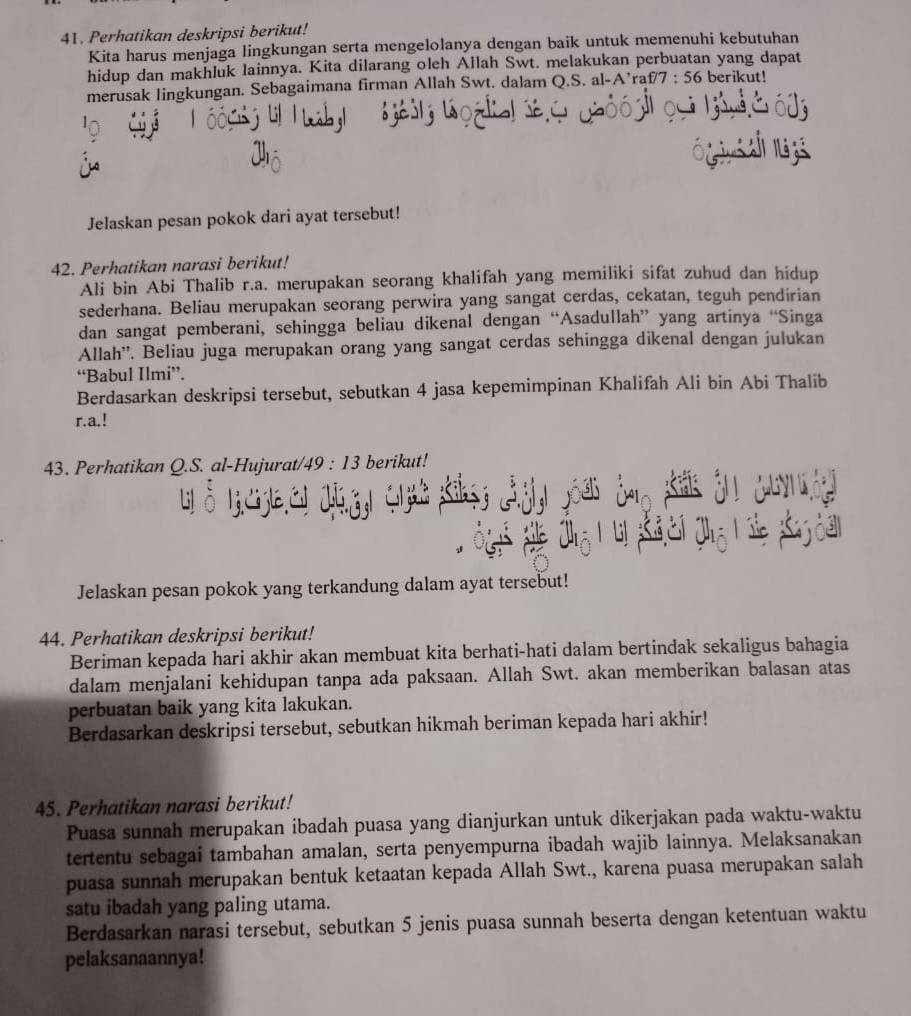 41. Perhatikan deskripsi berikut!
Kita harus menjaga lingkungan serta mengelolanya dengan baik untuk memenuhi kebutuhan
hidup dan makhluk lainnya. Kita dilarang oleh Allah Swt. melakukan perbuatan yang dapat
merusak lingkungan. Sebagaimana firman Allah Swt. dalam Q.S. al-A'raf/7 : 56 berikut!
Jelaskan pesan pokok dari ayat tersebut!
42. Perhatikan narasi berikut!
Ali bin Abi Thalib r.a. merupakan seorang khalifah yang memiliki sifat zuhud dan hidup
sederhana. Beliau merupakan seorang perwira yang sangat cerdas, cekatan, teguh pendirian
dan sangat pemberani, sehingga beliau dikenal dengan “Asadullah” yang artinya “Singa
Allah”. Beliau juga merupakan orang yang sangat cerdas sehingga dikenal dengan julukan
“Babul Ilmi”.
Berdasarkan deskripsi tersebut, sebutkan 4 jasa kepemimpinan Khalifah Ali bin Abi Thalib
r.a.!
43. Perhatikan Q.S. al-Hujurat/49 : 13 berikut!
Jelaskan pesan pokok yang terkandung dalam ayat tersebut!
44. Perhatikan deskripsi berikut!
Beriman kepada hari akhir akan membuat kita berhati-hati dalam bertindak sekaligus bahagia
dalam menjalani kehidupan tanpa ada paksaan. Allah Swt. akan memberikan balasan atas
perbuatan baik yang kita lakukan.
Berdasarkan deskripsi tersebut, sebutkan hikmah beriman kepada hari akhir!
45. Perhatikan narasi berikut!
Puasa sunnah merupakan ibadah puasa yang dianjurkan untuk dikerjakan pada waktu-waktu
tertentu sebagai tambahan amalan, serta penyempurna ibadah wajib lainnya. Melaksanakan
puasa sunnah merupakan bentuk ketaatan kepada Allah Swt., karena puasa merupakan salah
satu ibadah yang paling utama.
Berdasarkan narasi tersebut, sebutkan 5 jenis puasa sunnah beserta dengan ketentuan waktu
pelaksanaannya!